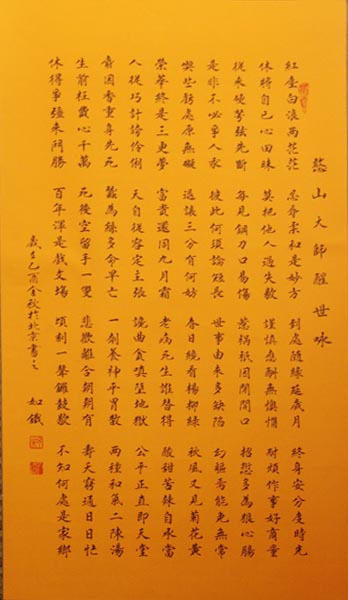 憨山大師醒世詠
紅塵白浪兩茫茫 忍辱柔和是妙方 到處隨緣延歲月 終身安分度時光
休將自己心田昧 莫把他人過失揚 謹慎應酬無懊惱 耐煩作事好商量
從來硬弩弦先斷 每見鋼刀口易傷 惹禍祇因閒開口 招愆多為狠心腸
是非不必爭人我 彼此何須論短長 世事由來多缺陷 幻軀焉能免無常
喫些虧處原無礙 退讓三分有何妨 春日纔看楊柳綠 秋風又見菊花黃
榮華終是三更夢 富貴還同九月霜 老病死生誰替得 酸甜苦辣自承當
人從巧計誇伶俐 天自從容定主張 諂曲貪嗔墮地獄 公平正直即天堂
麝因香重身先死 蠶為絲多命早亡 一劑養神平胃散 兩種和氣二陳湯
生前枉費心千萬 死後空留手一雙 悲歡離合朝朝有 壽夭窮通日日忙
休得爭強來鬥勝 百年渾是戲文場 頃刻一聲鑼鼓歇 不知何處是家鄉
歲在乙酉金秋於北京書之 如鐵